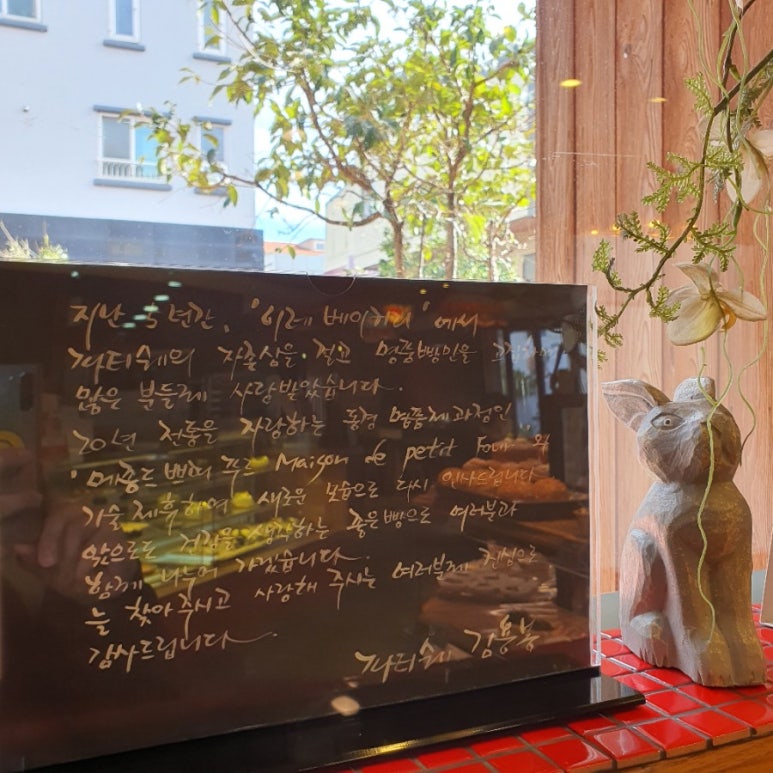 지난 5년간, '이레 베이커리'에서
파티쉐의 자존심을 걸고 명품빵만을 고집하며
많은 분들께 사랑받았습니다.
20년 전통을 자랑하는 동경 명품제과점인
'메종드 쁘띠 푸르 Maison de petit Four'와
기술제휴하여 새로운 모습으로 다시 인사드립니다
앞으로도 건강을 생각하는 좋은빵으로 여러분과
함께 나누어 가겠습니다.
늘 찾아주시고 사랑해 주시는 여러분께 진심으로
감사드립니다.
파티쉐 김용봉